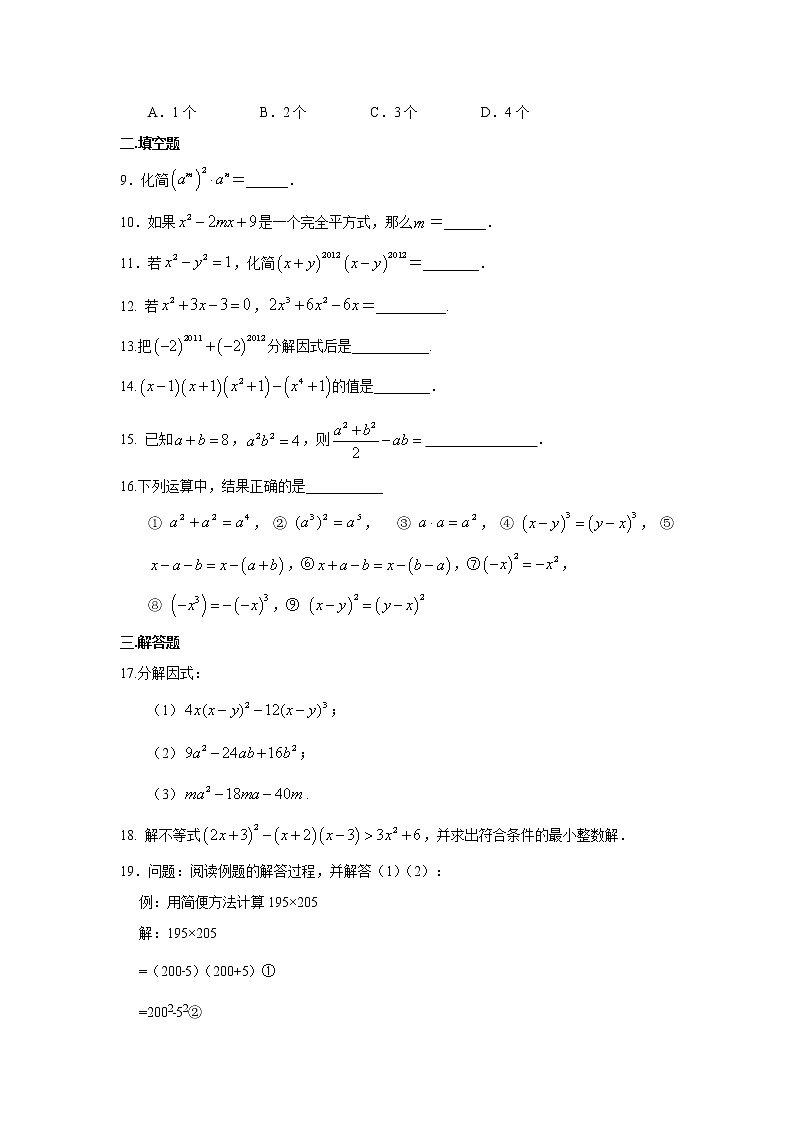 A．1个 B．2个 C．3个 D．4个
二.填空题
9．化简(aᵐ)²·aⁿ＝______．
10．如果x²－2mx＋9是一个完全平方式，那么m＝______．
11．若x²－y²＝1，化简(x＋y)²⁰¹²(x－y)²⁰¹²＝________．
12. 若x²＋3x－3＝0，2x³＋6x²－6x＝__________.
13.把(－2)²⁰¹¹＋(－2)²⁰¹²分解因式后是___________.
14.(x－1)(x＋1)(x²＋1)－(x⁴＋1)的值是________．
15. 已知a＋b＝8，a²b²＝4，则(a²＋b²)/2－ab＝________________．
16.下列运算中，结果正确的是___________
① a²＋a²＝a⁴，② (a³)²＝a⁵， ③ a·a＝a²，④ (x－y)³＝(y－x)³，⑤
x－a－b＝x－(a＋b)，⑥x＋a－b＝x－(b－a)，⑦(－x)²＝－x²，
⑧ (－x³)＝－(－x)³，⑨ (x－y)²＝(y－x)²
三.解答题
17.分解因式：
（1）4x(x－y)²－12(x－y)³；
（2）9a²－24ab＋16b²；
（3）ma²－18ma－40m．
18. 解不等式(2x＋3)²－(x＋2)(x－3)＞3x²＋6，并求出符合条件的最小整数解．
19．问题：阅读例题的解答过程，并解答（1）（2）：
例：用简便方法计算195×205
解：195×205
=（200-5）（200+5）①
=200²-5²②